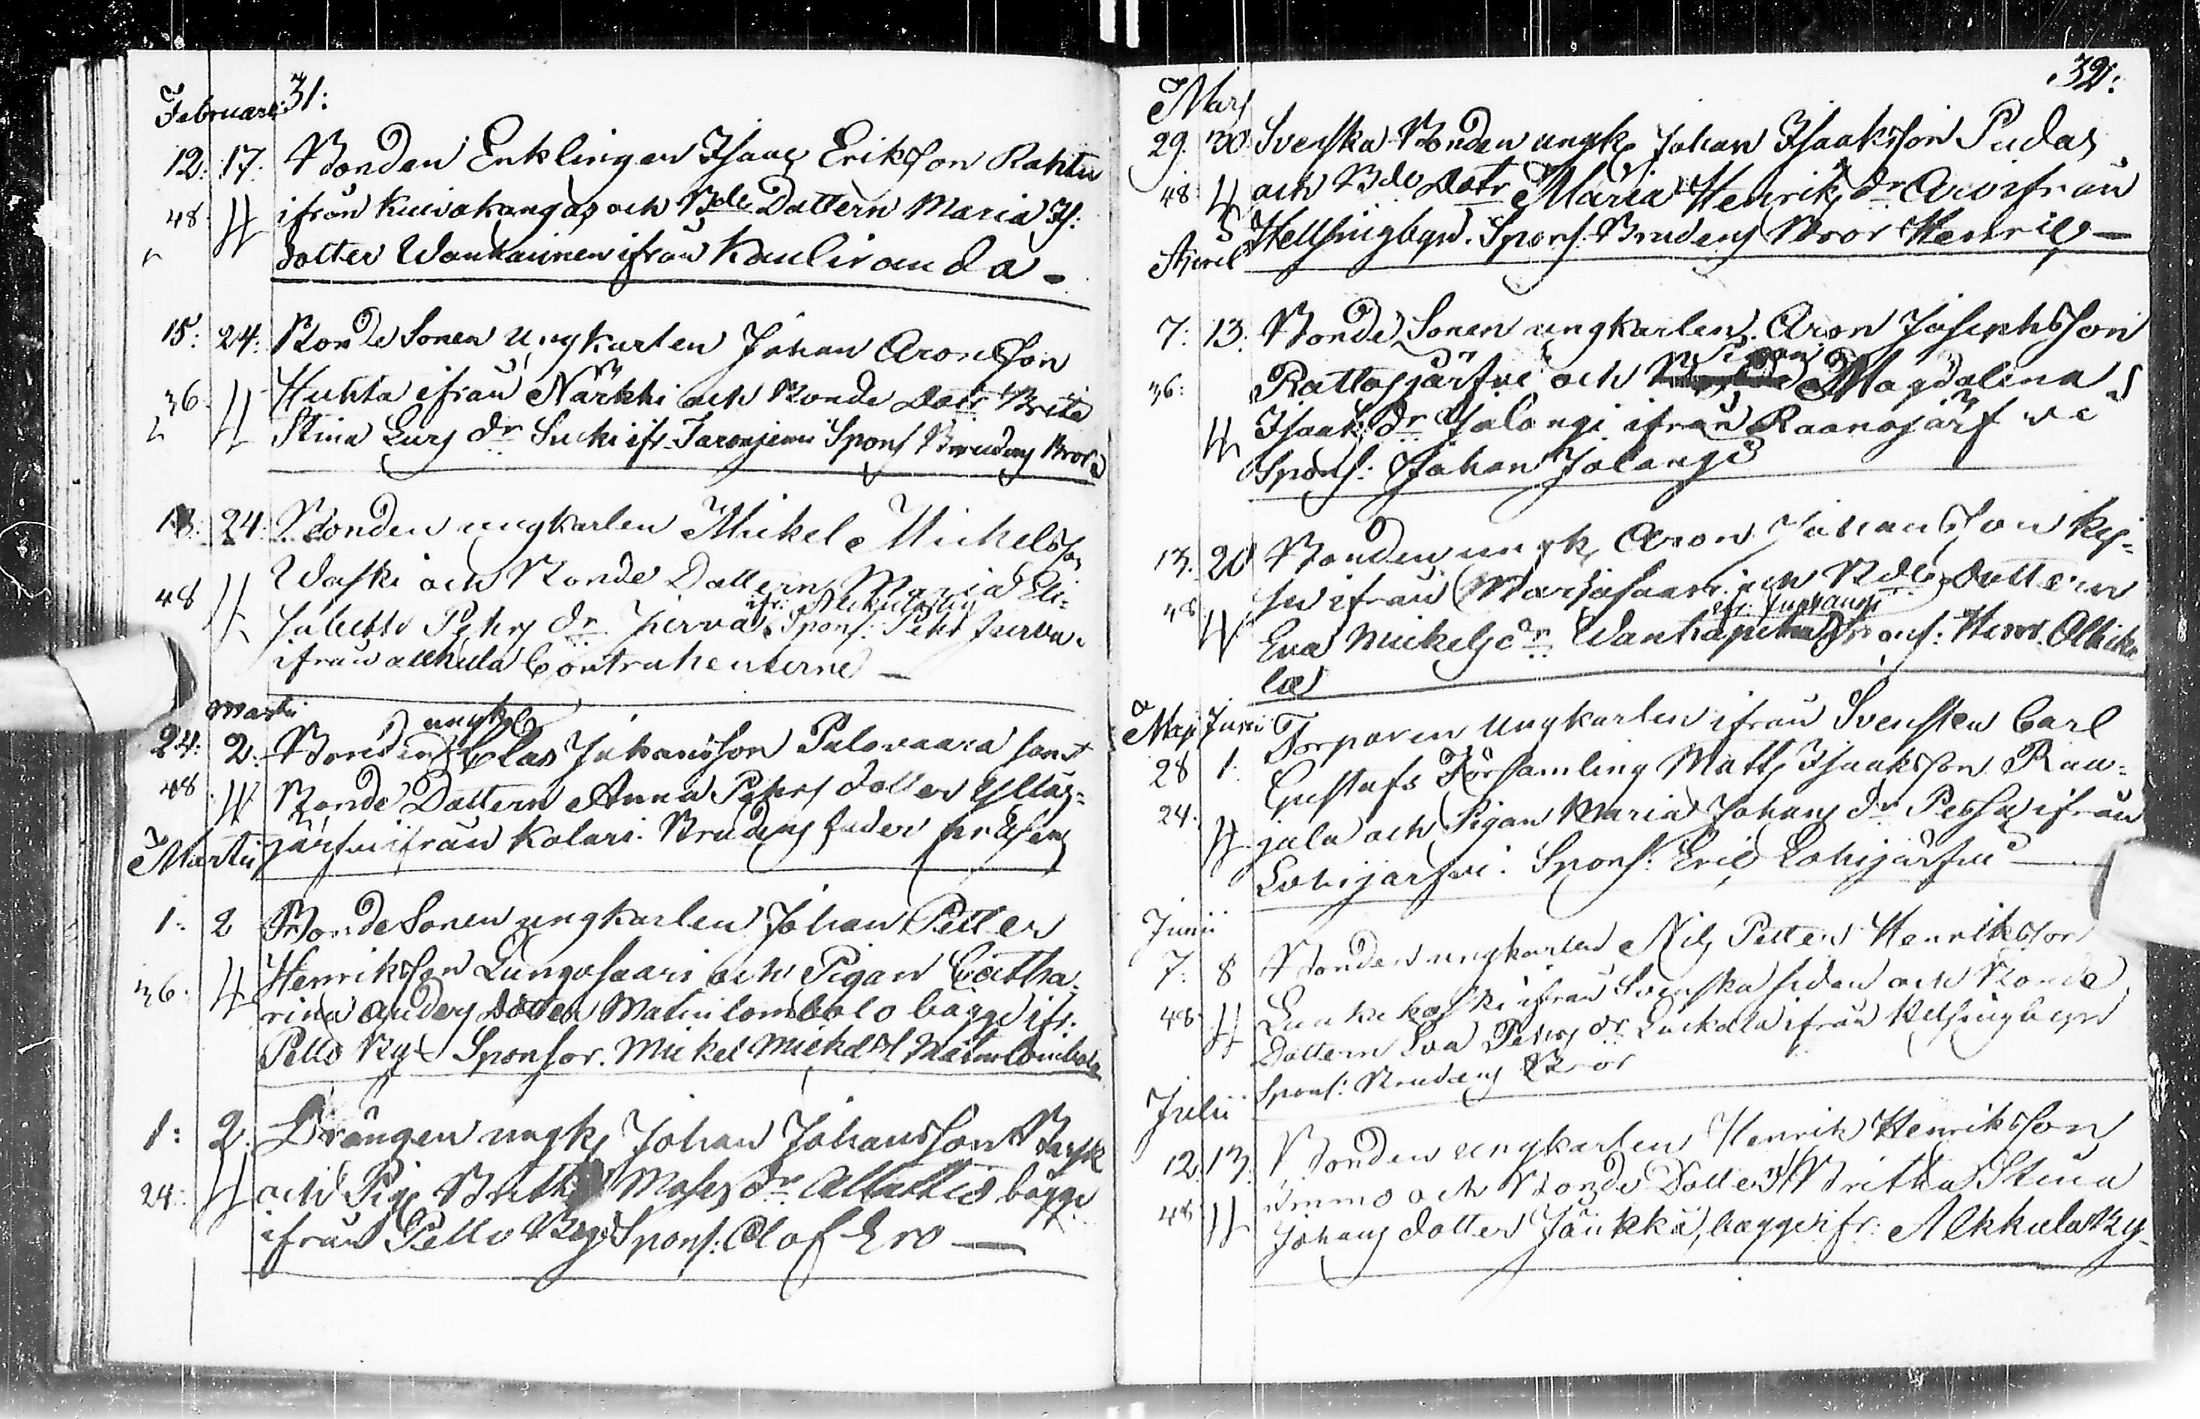 Februari: 31:
12: 17: Bonden Enklingen Isaac Eriksson Rahtu
48. ifrån Kuivakangas och Bde Dottern Maria Is:
dotter Wankainen ifrån Kauliranda -
15: 24: Bonde Sonen Ungkarlen Johan Aronsson
36 Huhta ifrån Närkki och Bonde Dotr Brita
Stina Lars dr Sucki ifr. Jaronjemi Spons Brudens Bror
13: 24: Bonden ungkarlen Mikel Mickelsson
48 och Bonde Dottern Maria Eli=
sabetth Pehrs dr Jierva ifr. Alkula by Spons: Pehr Jierva
ifrån Alkula Contrahenterne -
Martii
24: 2. Bonden ungk Clas Johansson Palovaara samt
48 Bonde Dottern Anna Pehrs dotter Ylläs=
Martii järfvi ifrån Kolari. Brudens fader præsens
1: 2 Bonde Sonen ungkarlen Johan Petter
36. Henriksson Lungosaari och Pigan Catha=
rina Anders Dotter Matinlombolo bagge ifr:
Pello By Sponsor. Mickel Mickels Matinlombolo
1: 2. Drängen ungk Johan Johansson
24: och Pig Britha Mats dr Alattio bägge
ifrån Pello By Spons: Olof Ero -
32:
Mars
29. 30. Svenska Bonden ungk Johan Isaksson Pudas
48 och Bde Dotr Maria Henriks dr Arvo ifrån
Hellsingbyn. Spons. Brudens Bror Henric -
Aprel
7: 13. Bonde Sonen ungkarlen Aron Josephsson
36: Rattosjärfvi och Pigan Magdalena
Isaks dr Jolangi ifrån Raanojärfvi
Spons: Johan Jolangi
13. 20 Bonden ungk Aron Johansson
48 ifrån Marjosaari och Bde Dottern
Eva Mickels dr Spons: Henr. Alkiku
la
Maji Juni Torparen Ungkarlen ifrån Svensten Carl
28 1. Gustafs Församling Matts Isaksson Raa=
24. jala och Pigan Maria Johans dr Pessa ifrån
Lohijärfvi. Spons: Eric Lohijärfvi -
Junii
7: 8 Bonden ungkarlen Nils Petter Henriksson
48 ifrån Svenska sidan och Bonde
Dottern Eva Pehrs dr Luckala ifrån Helsingbyn
Spons: Brudens Bror
Julii
12 13. Bonden ungkarlen Henrik Henriksson
48 Wimmo och Bonde Dottern Britha Stina
Johans dotter Jänkkä, bagge ifr: Alkkula By